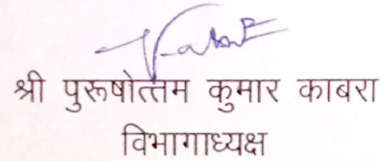 श्री पुरूषोत्तम कुमार काबरा
विभागाध्यक्ष